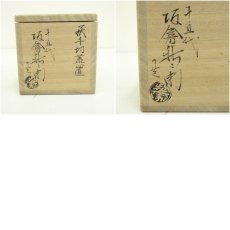 萩千切蓋置
十五代
坂倉新兵衛
十五代
坂倉新兵衛